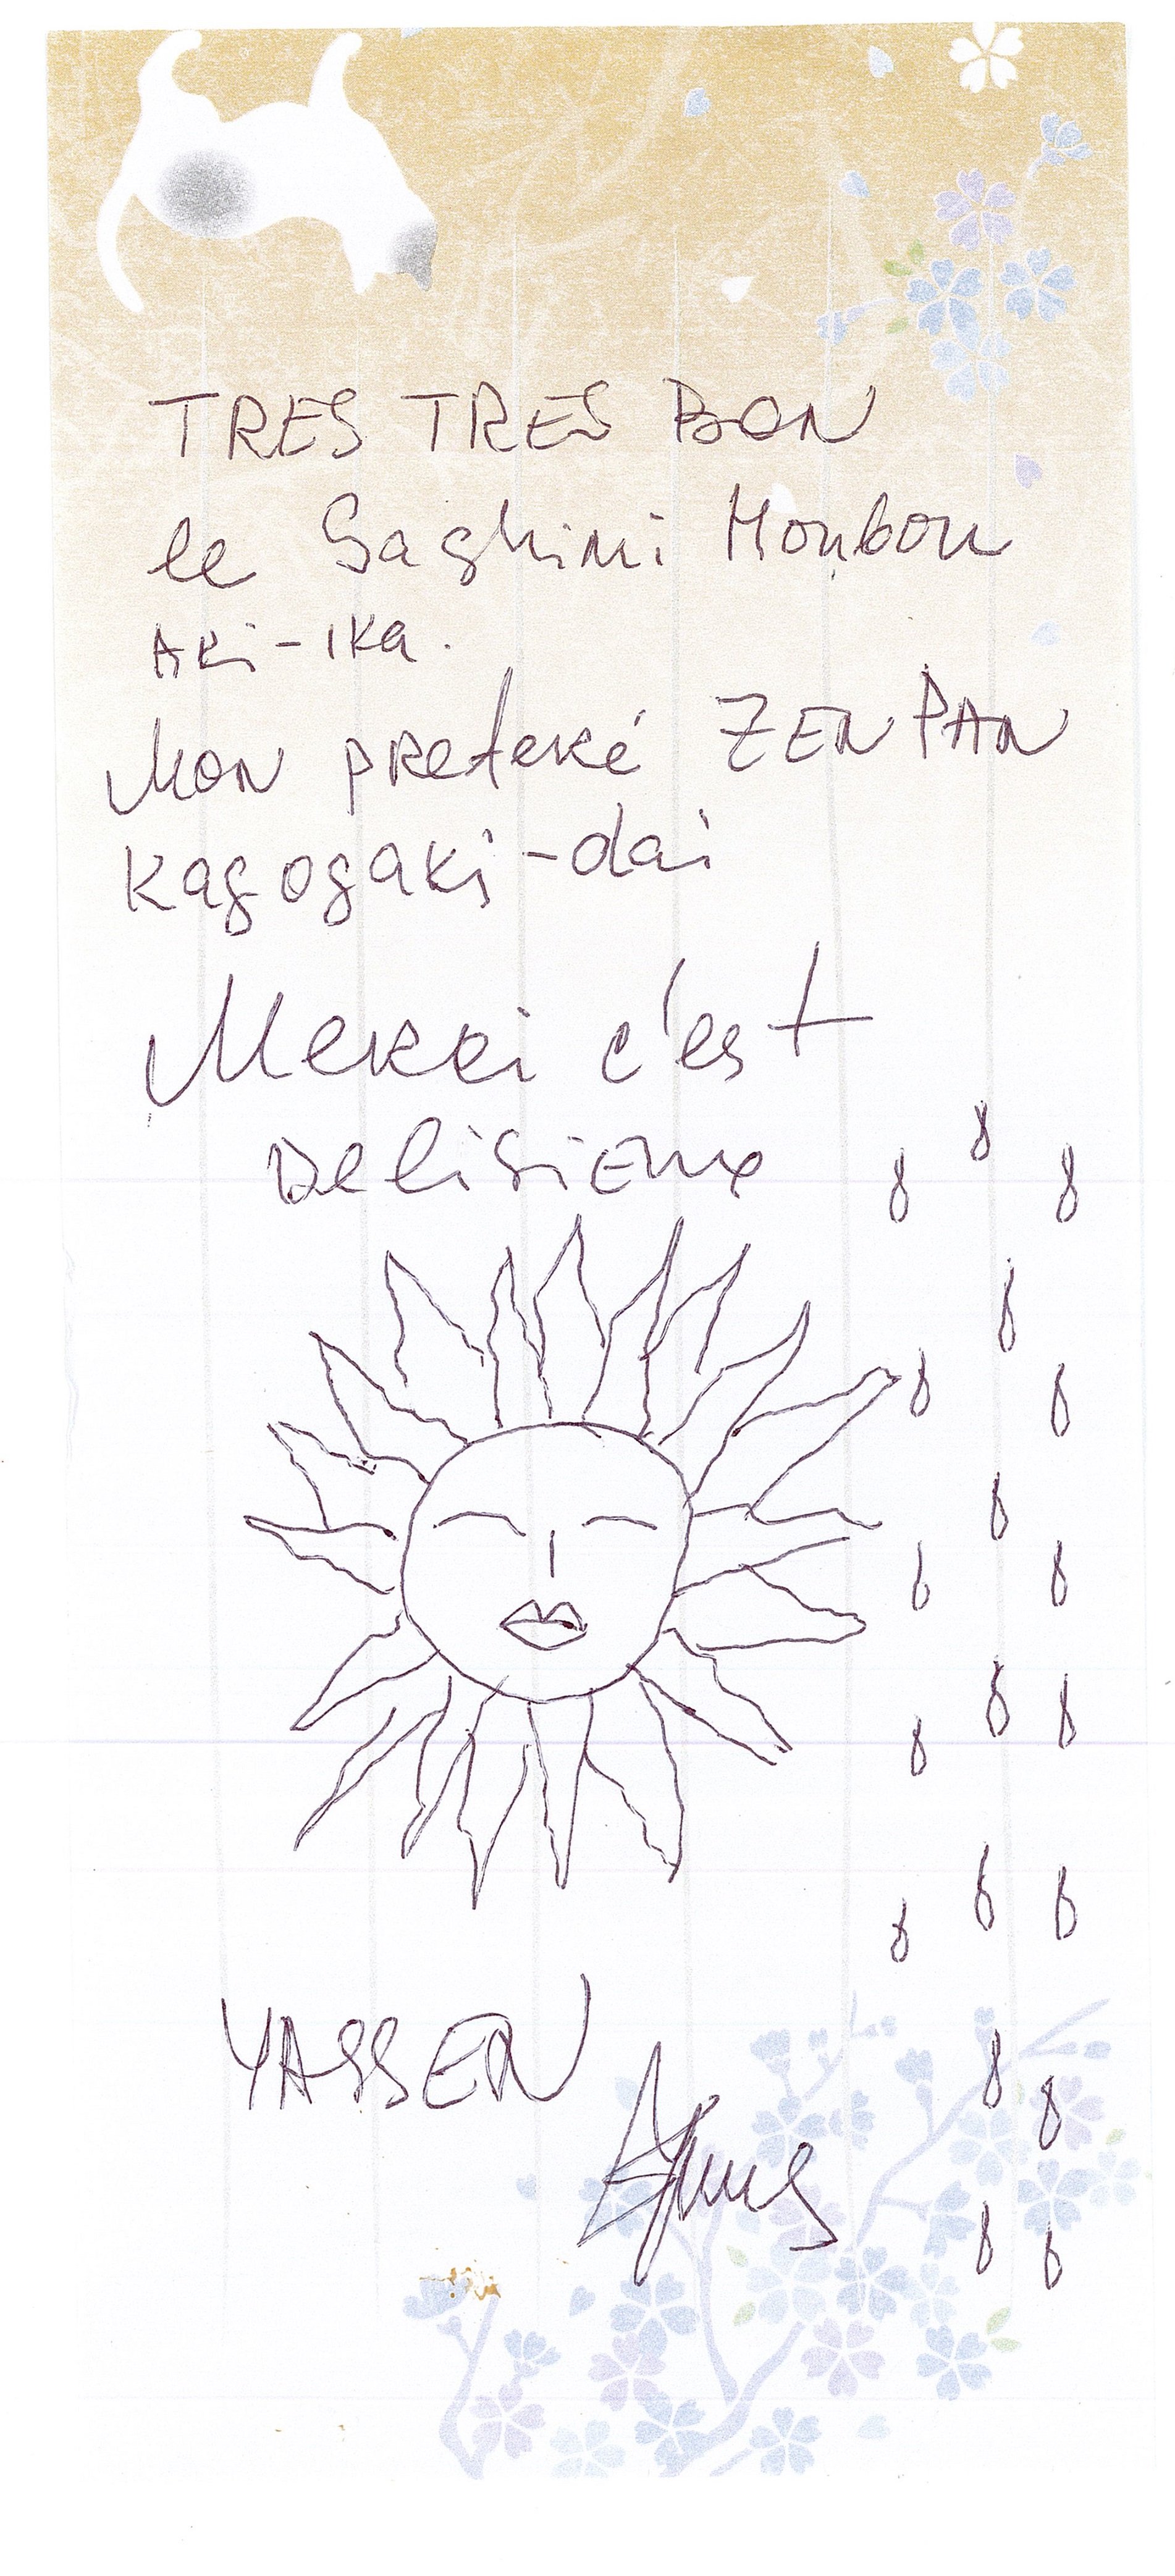 TRES TRES BON
le Sashimi Honbou
AKi-IKa.
Mon preferé ZENPAN
Kagogaki-dai
Merci c'est
Delisieux
YASSEN